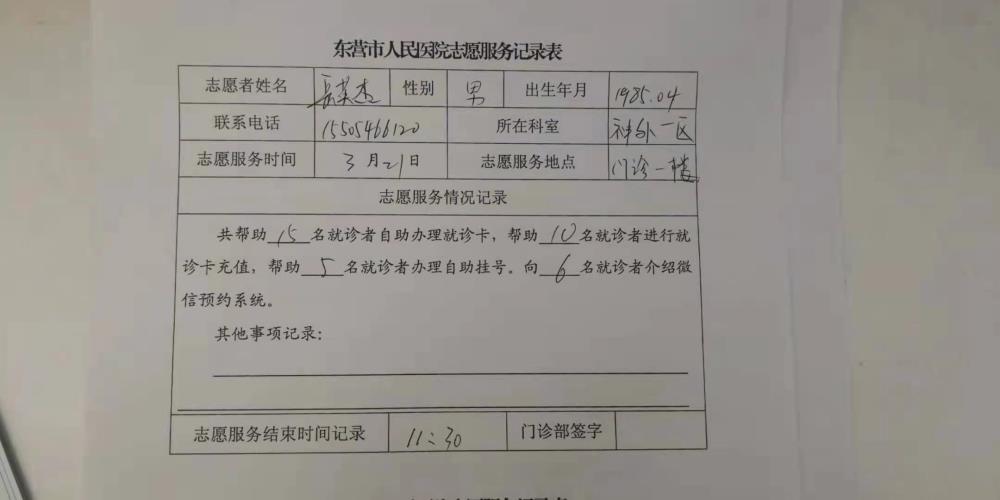 东营市人民医院志愿服务记录表
志愿者姓名 英杰 性别 男 出生年月 1985.04
联系电话 15505466120 所在科室 神外一区
志愿服务时间 3月21日 志愿服务地点 门诊一楼
志愿服务情况记录
共帮助15名就诊者自助办理就诊卡，帮助10名就诊者进行就
诊卡充值，帮助5名就诊者办理自助挂号。向6名就诊者介绍微
信预约系统。
其他事项记录：
志愿服务结束时间记录 11:30 门诊部签字